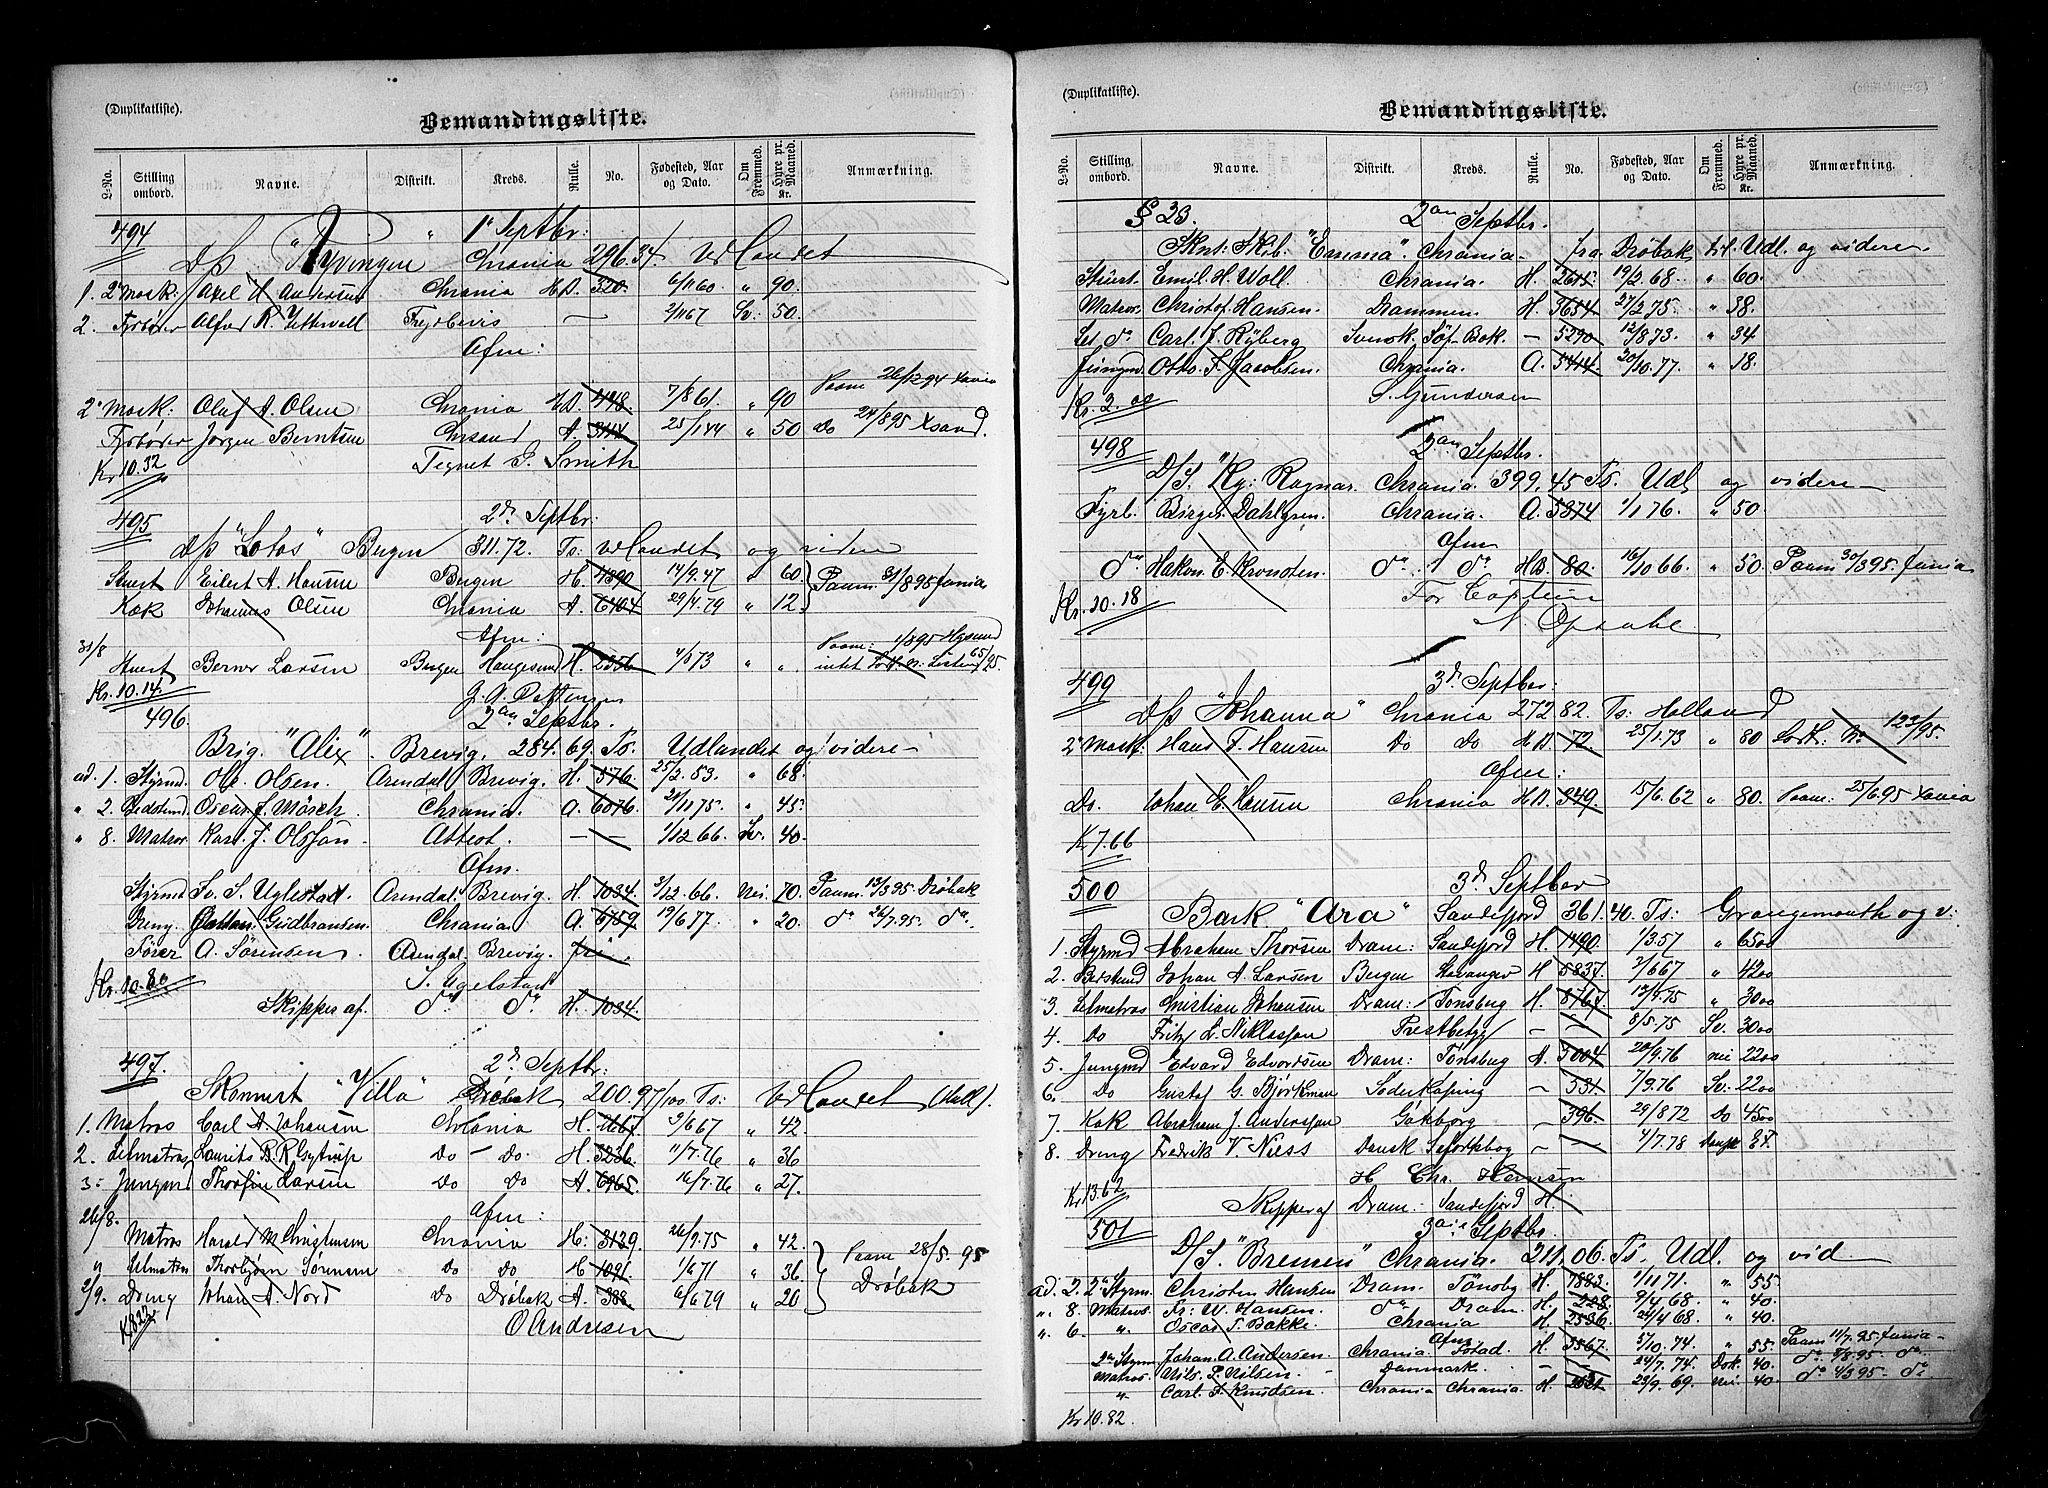 (Duplikatliste).
Bemandingsliste.
L-No. Stilling ombord. Navne. Distrikt. Kreds. Rulle. No. Fødested, Aar og Dato. Om Fremmed. Hyre pr. Maaned. Kr. Anmærkning.
494 1ste Septbr:
D/S "Tyvingen" Chrania 296.34. Udlandet
1. 2' Mask: Axel H. Andersen Chrania HD. 320. 6/1160 " 90.
2. Fyrbøter Alfred R. — 2/1167 Sv. 50.
Afm:
2' Mask: Olaf A. Olsen Chrania HD. 448. 7/861. " 90 Paam 26/12 94 Xania
Fyrbøter Jørgen Berntsen Chrsand A. 3114 25/144 " 50 Do 24/895 Xsand.
Kr 10.32 Tegnet P. Smith
495 2den Septbr:
D/S "Lotos" Bergen 311.72. Ts: Udlandet og videre
Stuert Eilert A. Hansen Bergen H. 4390 14/9.47 " 60 Paam: 31/8 95 Xania
Kok Johannes Olsen Chrania A. 6404 29/4.79 " 12.
Afm:
31/8 Stuert Berner Larsen Bergen Haugesund H. 2356 4/873 " " Paam: 1/895 Hgsund
Kr. 10.14
496. 2den Septbr.
Brig. "Alix" Brevig. 284.69. Ts. Udlandet og videre
ad. 1. Styrmd. Ole Olsen. Arendal Brevig. H. 576. 25/2.53. " 68.
" 2. Bedstmd Oscar J. Mösch. Chrania. A. 6076. 21/1175. " 45.
" 8. Matros Karl J. Olsson. Attest. — — 1/12.66. Sv. 40.
Afm.
Styrmd Sv. S. Uglestad. Arendal. Brevig. H. 1034. 3/12.66. Nei. 70. Paam. 13/395. Drøbak
Dreng. Gudbransen. Chrania A. 6759 19/677. " 20. do 26/7.95. do.
Fører A. Sörensen Arendal. Brevig. fri
Kr. 10.80 S. Ugelstad
Skipper af. do do H. 1034.
497. 2den Septbr:
Skonnert "Villa" Drøbak 200.97/100 Ts: Udlandet (Hull).
1. Matros Carl A. Johansen Chrania H. 2667 3/667 " 42
2. Letmatros Laurits B. R. Gytrup Do — Do H. 3236. 11/7.76 " 36
3. Jungmd Thorfin Larsen Do Do A. 6965. 16/7.76 " 27.
26/8. Afm:
Matros Harald M. Christensen Chrania H: 3139. 26/9.75 " 42. Paam 28/5.95
" Letmatros Thorbjørn Sørensen Do Do H 1091. 1/671 " 36 Drøbak
2/9. Dreng Johan A. Nord Do Drøbak A. 388. 6/679 " 20
K 8 22 O Andresen
(Duplikatliste).
Bemandingsliste.
L-No. Stilling ombord. Navne. Distrikt. Kreds. Rulle. No. Fødested, Aar og Dato. Om Fremmed. Hyre pr. Maaned. Kr. Anmærkning.
§ 23. 2den Septbr.
Sknt: Skib. "Emma". Chrania. fra Drøbak til Udl. og videre
Stuert. Emil. H. Woll. Chrania. H. 2615. 19/2.68. " 60.
Matros. Christof. Hansen. Drammen. H. 3654 27/2.75. " 38.
Let do. Carl. J. Ryberg Svensk. Søf. Bok. — 5290 12/8.73. " 34
Jungmd. Otto. F. Jacobsen. Chrania. A. 5414 20/10.77. " 18.
Kr. 2.00 S. Gundersen
498 2den Septbr.
D/S. "Kg: Ragnar. Chrania. 399.45 Ts. Udl og videre
Fyrb. Birger Dahlgren. Chrania. A. 5874 1/1.76. " 50.
Afm
do Hakon. E. Kronsten. do. do HB. 80. 16/10 66. " 50. Paam 30/395. Xania
Kr. 10.18 For Captein
N Opsahl
499 3die Septbr:
D/S "Johanna" Chrania 272 82. Ts: Holland
2' Mask: Hans F. Hansen Do Do HD. 72. 25/1.73 " 80 No 123/95.
Afm:
Do. Johan E. Hansen Chrania HD. 349. 15/6.62 " 80. Paam: 25/6.95 Xania
K 7.66
500 3die Septber
Bark "Ara" Sandefjord 361.40 Ts: Grangemouth og v:
1. Styrmd Abraham Thorsen Dram: Sandefjord H. 1490. 1/3.57 " 6500
2. Bestmd Johan A. Larsen Bergen Stavanger H 5837. 2/667 " 4200
3. Letmatros Christian Johansen Dram: Tønsberg H. 8767. 12/4.75 " 3000
4. Do Fritz L. Niklasson — — 8/5.75 Sv. 3000
5. Jungmd Edvard Edvardsen Dram: Tønsberg A. 5004. 20/9.76 nei 2200
6. Do Gustaf G. Björkman Söderköping — 531. 7/9.76 Sv. 2200
7. Kok Abraham J. Andersson Gøteborg — 396. 29/872 Do 4500
8. Dreng Fredrik V. Niess Dansk Søfartsbog — 4/7.78 Dansk
H Chr. Hansen
Kr 13.62 Skipper af Dram: Sandefjord H.
501 3die Septbr.
D/S. "Bremen" Chrania. 211.06. Ts. Udl. og vid
ad. 2. 2' Styrm. Christen Hansen Dram. Tönsbg H. 7883. 1/1171. " 55.
" 8. Matros. Fr: W. Hansen. do Dram. H. 228. 9/4 68. " 40.
" 6. " Oscar T. Bakke. Chrania H. 2586. 24/4 68. " 40.
Afm
2' Styrm Johan. A. Andersen. Chrania. Fstad. H. 3567. 3/10.74. " 55. Paam 11/7.95. Xania
Matros. Nils. P. Nilsen. Danmark. — — 24/7.74. Dsk. 40. do 3/8.95. do.
" Carl. F. Knudsen. Chrania Chrania. H. 23/9.69. nei. 40. do 4/395. do
Kr 10.82.